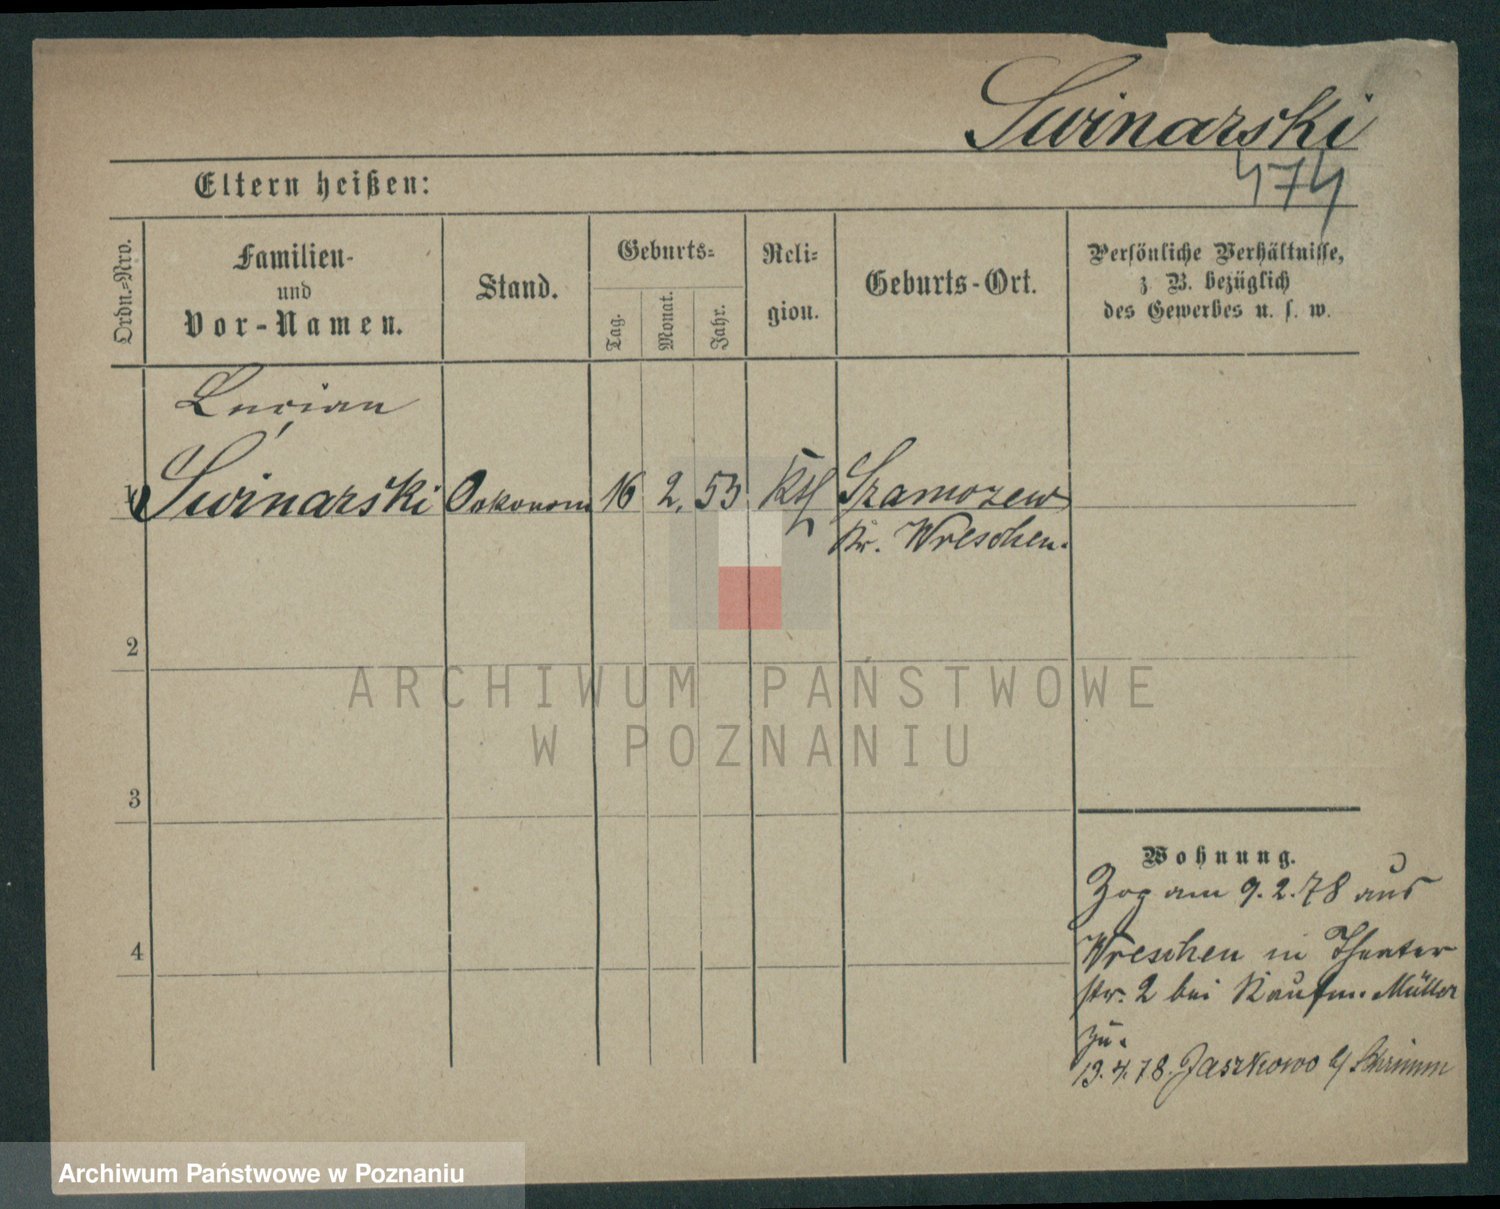 Swinarski
474
Eltern heißen:
Ordn.=Nro.
Familien-
und
Vor-Namen.
Stand.
Geburts=
Tag.
Monat.
Jahr.
Reli=
gion.
Geburts-Ort.
Persönliche Verhältnisse,
z. B. bezüglich
des Gewerbes u. s. w.
Lucian
1 Swinarski Oekonom 16 2. 53 Kth Szamozew
Kr. Wreschen.
2
ARCHIWUM PAŃSTWOWE
W POZNANIU
3
Wohnung.
Zog am 9.2.78 aus
4
Wreschen in Theater
str. 2 bei Kaufm. Müller
zu.
13.4.78. Jaszkowo b/ Schrimm
Archiwum Państwowe w Poznaniu